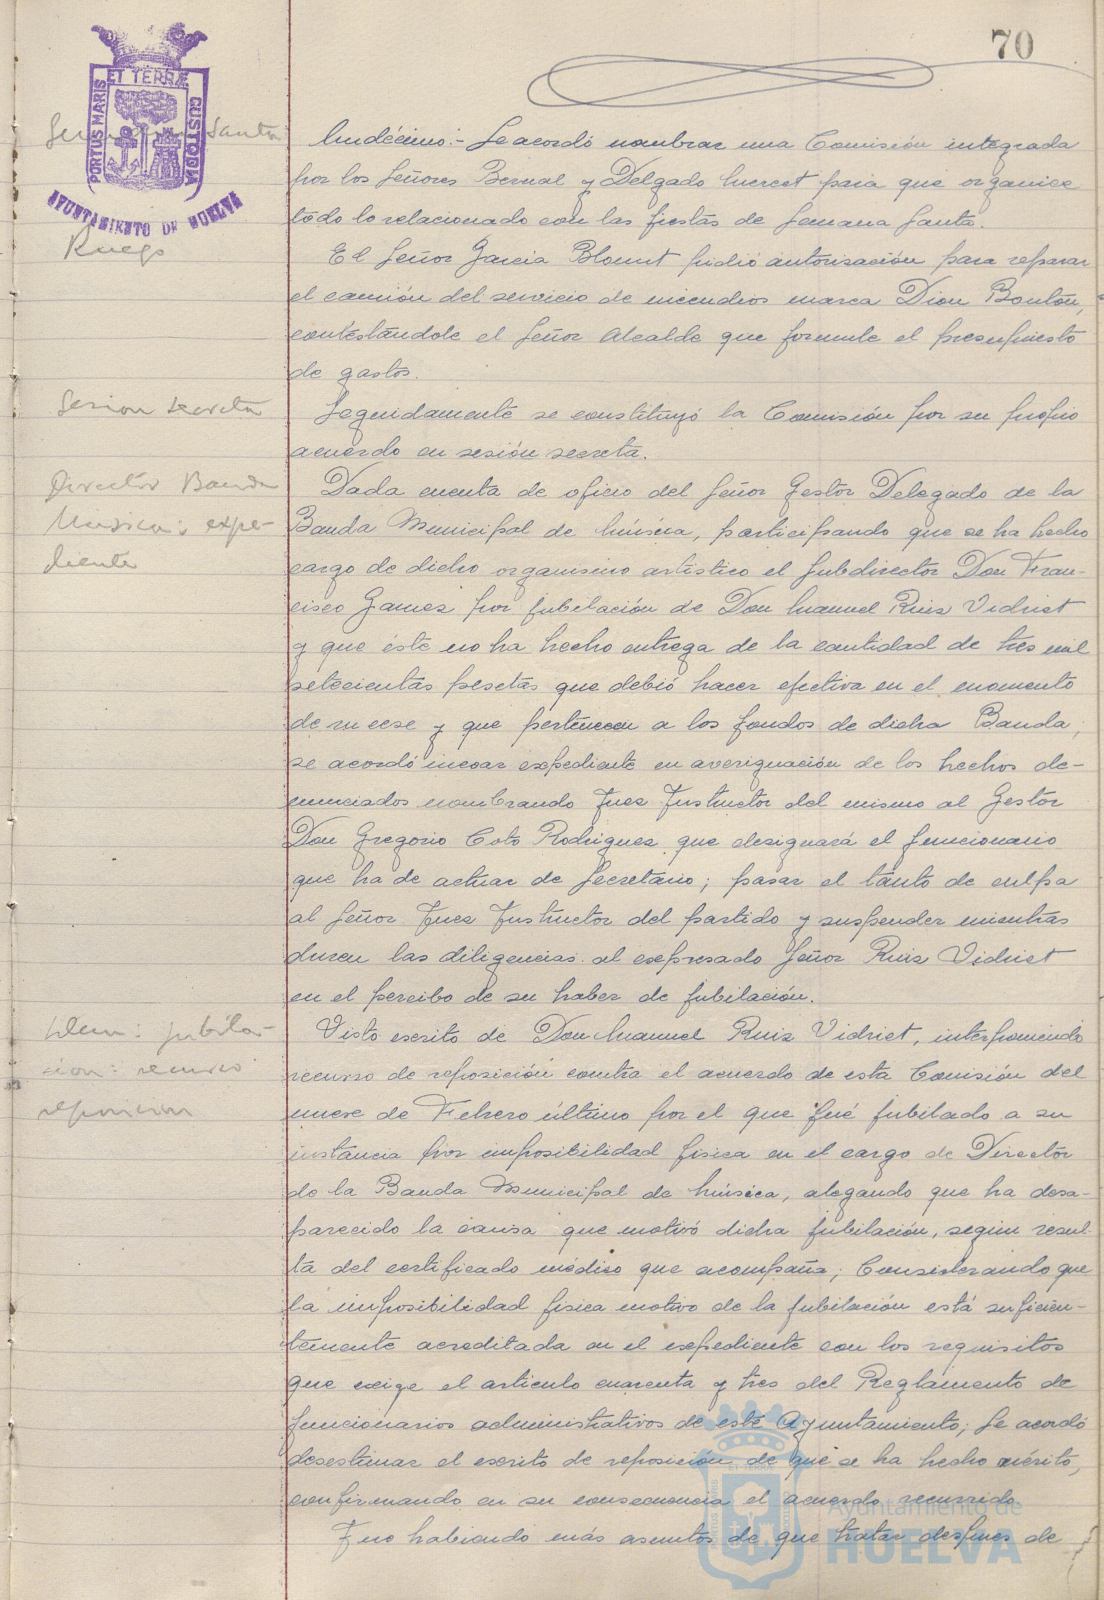 70
PORTUS MARIS
ET TERRÆ
CUSTODIA
AYUNTAMIENTO DE HUELVA
Santa
Undécimo:- Se acordó nombrar una Comisión integrada
por los Señores Bernal y Delgado para que organice
todo lo relacionado con las fiestas de Semana Santa.
Ruego
El Señor Garcia Blount pidió autorización para reparar
el camión del servicio de incendios marca Dion Boutón,
contestándole el Señor Alcalde que formule el presupuesto
de gastos.
Sesion secreta
Seguidamente se constituyó la Comisión por su propio
acuerdo en sesión secreta.
Director Banda
Musica: expe-
diente
Dada cuenta de oficio del Señor Gestor Delegado de la
Banda Municipal de música, participando que se ha hecho
cargo de dicho organismo artistico el Subdirector Don Fran-
cisco Gamez por jubilación de Don Manuel Ruiz Vidriet
y que éste no ha hecho entrega de la cantidad de tres mil
setecientas pesetas que debió hacer efectiva en el momento
de su cese y que pertenecen a los fondos de dicha Banda,
se acordó incoar expediente en averiguación de los hechos de-
nunciados nombrando Juez Instructor del mismo al Gestor
Don Gregorio Coto Rodriguez que designará el funcionario
que ha de actuar de Secretario; pasar el tanto de culpa
al Señor Juez Instructor del partido y suspender mientras
duren las diligencias al expresado Señor Ruiz Vidriet
en el percibo de su haber de jubilación.
Idem: jubila-
cion: recurso
reposicion
Visto escrito de Don Manuel Ruiz Vidriet, interponiendo
recurso de reposición contra el acuerdo de esta Comisión del
nueve de Febrero último por el que fué jubilado a su
instancia por imposibilidad fisica en el cargo de Director
de la Banda Municipal de música, alegando que ha desa-
parecido la causa que motivó dicha jubilación, según resul-
ta del certificado médico que acompaña; Considerando que
la imposibilidad fisica motivo de la jubilación está suficien-
temente acreditada en el expediente con los requisitos
que exige el articulo cuarenta y tres del Reglamento de
funcionarios administrativos de este Ayuntamiento; Se acordó
desestimar el escrito de reposición de que se ha hecho mérito,
confirmando en su consecuencia el acuerdo recurrido.
Y no habiendo más asuntos de que tratar después de
Ayuntamiento de
HUELVA